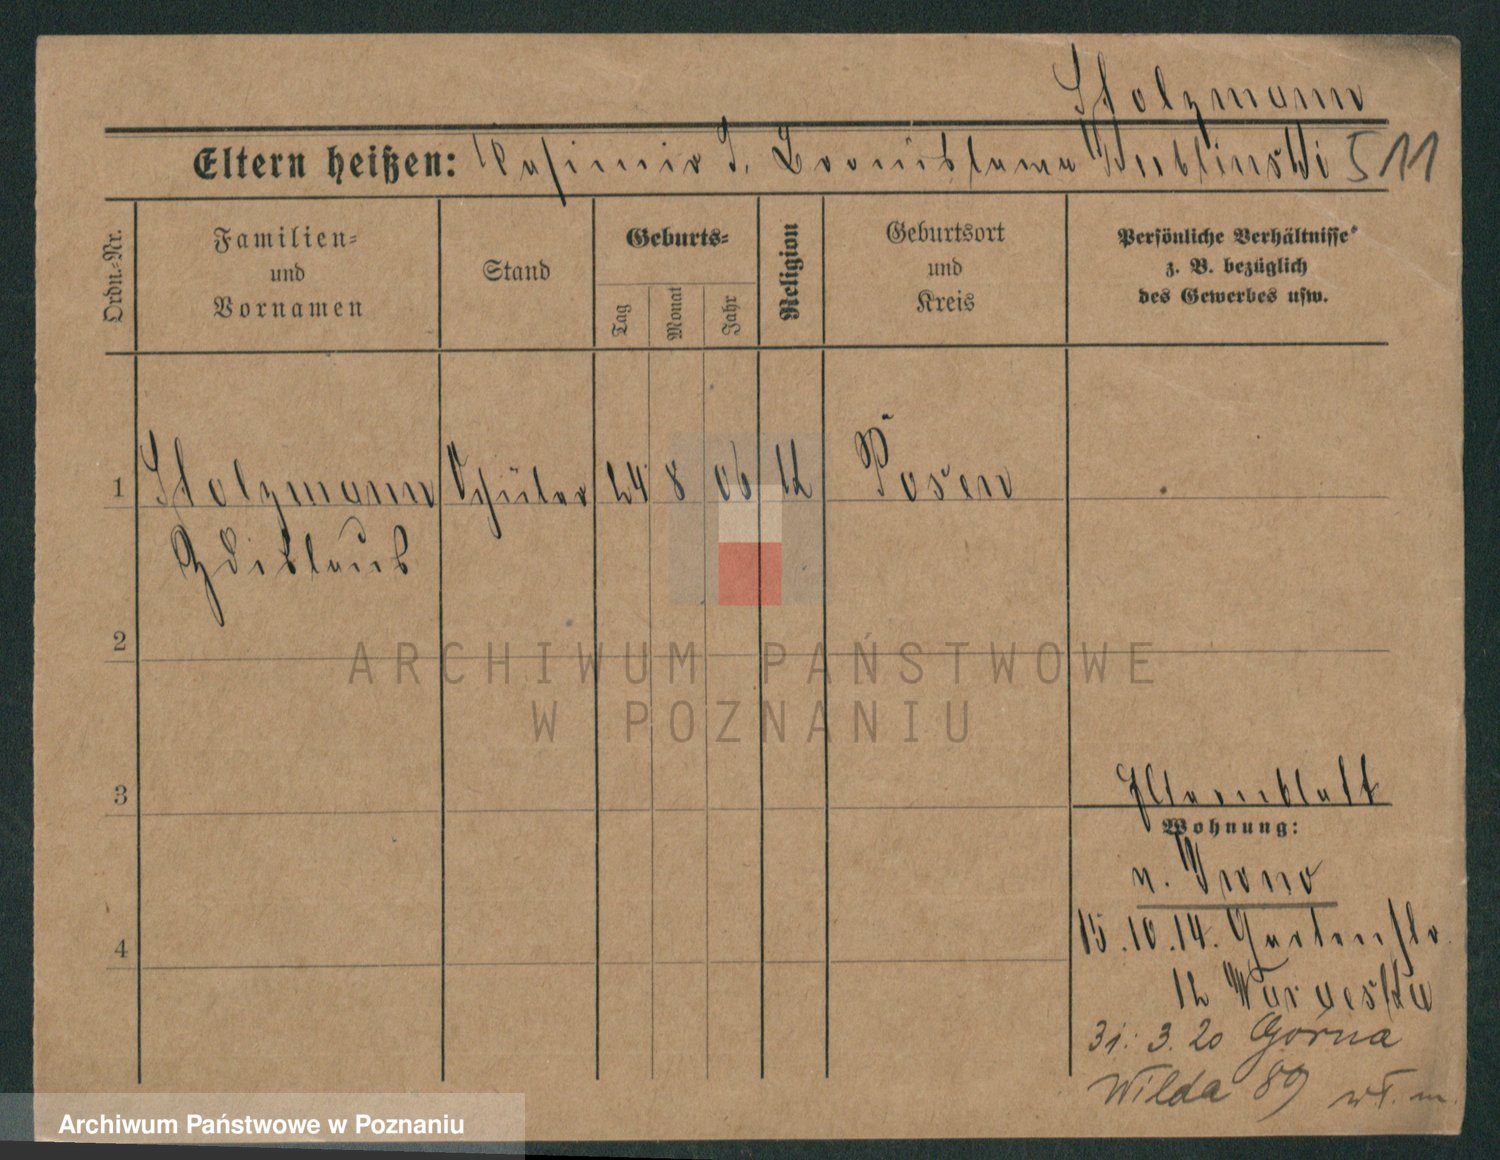 Stolzmann
Eltern heißen: Kasimir u. Bronislawa Wublinski 511
Ordn.-Nr.
Familien-
und
Vornamen
Stand
Geburts-
Tag
Monat
Jahr
Religion
Geburtsort
und
Kreis
Persönliche Verhältnisse
z. B. bezüglich
des Gewerbes usw.
1 Stolzmann Schüler 24 8 06 Posen
Zdislaus
2
ARCHIWUM PAŃSTWOWE
W POZNANIU
3
Elternblatt
Wohnung:
4
15.10.14. Gartenstr.
12
31. 3. 20 Górna
Wilda 89
Archiwum Państwowe w Poznaniu